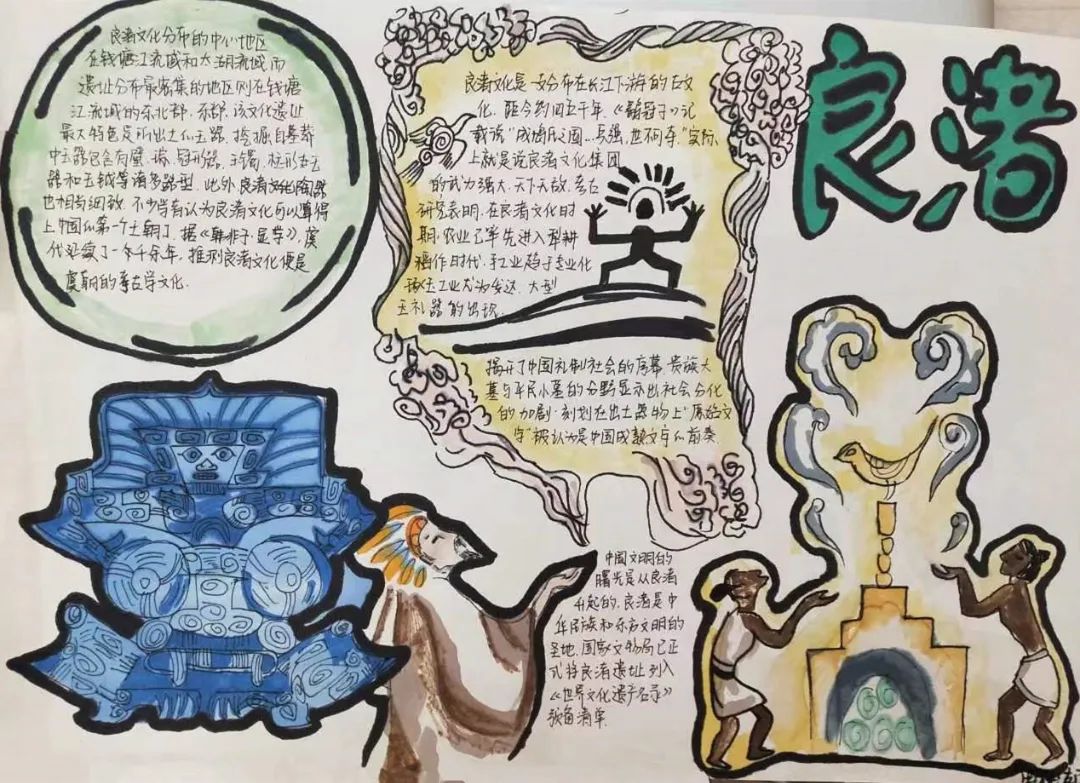 良渚
良渚文化分布的中心地区
在钱塘江流域和太湖流域,而
遗址分布最密集的地区则在钱塘
江流域的东北部、东部.该文化遗址
最大特色是所出土的玉器.挖掘自墓葬
中玉器包含有璧、琮、冠形器、玉镯、柱形玉
器和玉钺等诸多器型.此外,良渚文化陶器
也相当细致.不少学者认为良渚文化可以算得
上中国的第一个王朝了.据《韩非子·显学》,虞
代延续了一千余年,推测良渚文化便是
虞朝的考古学文化.
良渚文化是一支分布在长江下游的古文
化,距今约四五千年.《鹖冠子》记
载说"成鸠氏之国…兵强,世不可夺."实际
上就是说良渚文化集团
的武力强大,天下无敌.考古
研究表明,在良渚文化时
期,农业已率先进入犁耕
稻作时代,手工业趋于专业化
琢玉工业尤为发达.大型
玉礼器的出现
揭开了中国礼制社会的序幕,贵族大
墓与平民小墓的分野显示出社会分化
的加剧.刻划在出土器物上"原始文
字"被认为是中国成熟文字的前奏.
中国文明的
曙光是从良渚
升起的.良渚是中
华民族和东方文明的
圣地.国家文物局已正
式将良渚遗址列入
《世界文化遗产名录》
预备清单.